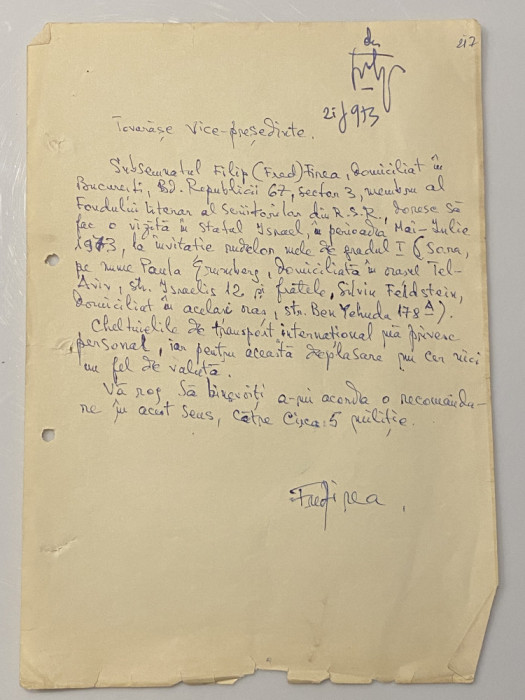 217
da
21/973
Tovarășe Vice-președinte.
Subsemnatul Filip (Fred) Firea, domiciliat în
București, Bd. Republicii 67, sector 3, membru al
Fondului Literar al Scriitorilor din R.S.R., doresc să
fac o vizită în statul Israel, în perioada Mai-Iulie
1973, la invitația rudelor mele de gradul I (Sora,
pe nume Paula Grunberg, domiciliată în orașul Tel-
Aviv, str. Israelis 12 și fratele, Silviu Feldstein,
domiciliat în același oraș, str. Ben Yehuda 178 A).
Cheltuielile de transport internațional mă privesc
personal, iar pentru această deplasare nu cer nici
un fel de valută.
Vă rog să binevoiți a-mi acorda o recomanda-
re în acest sens, către Circa 5 miliție.
Fred Firea